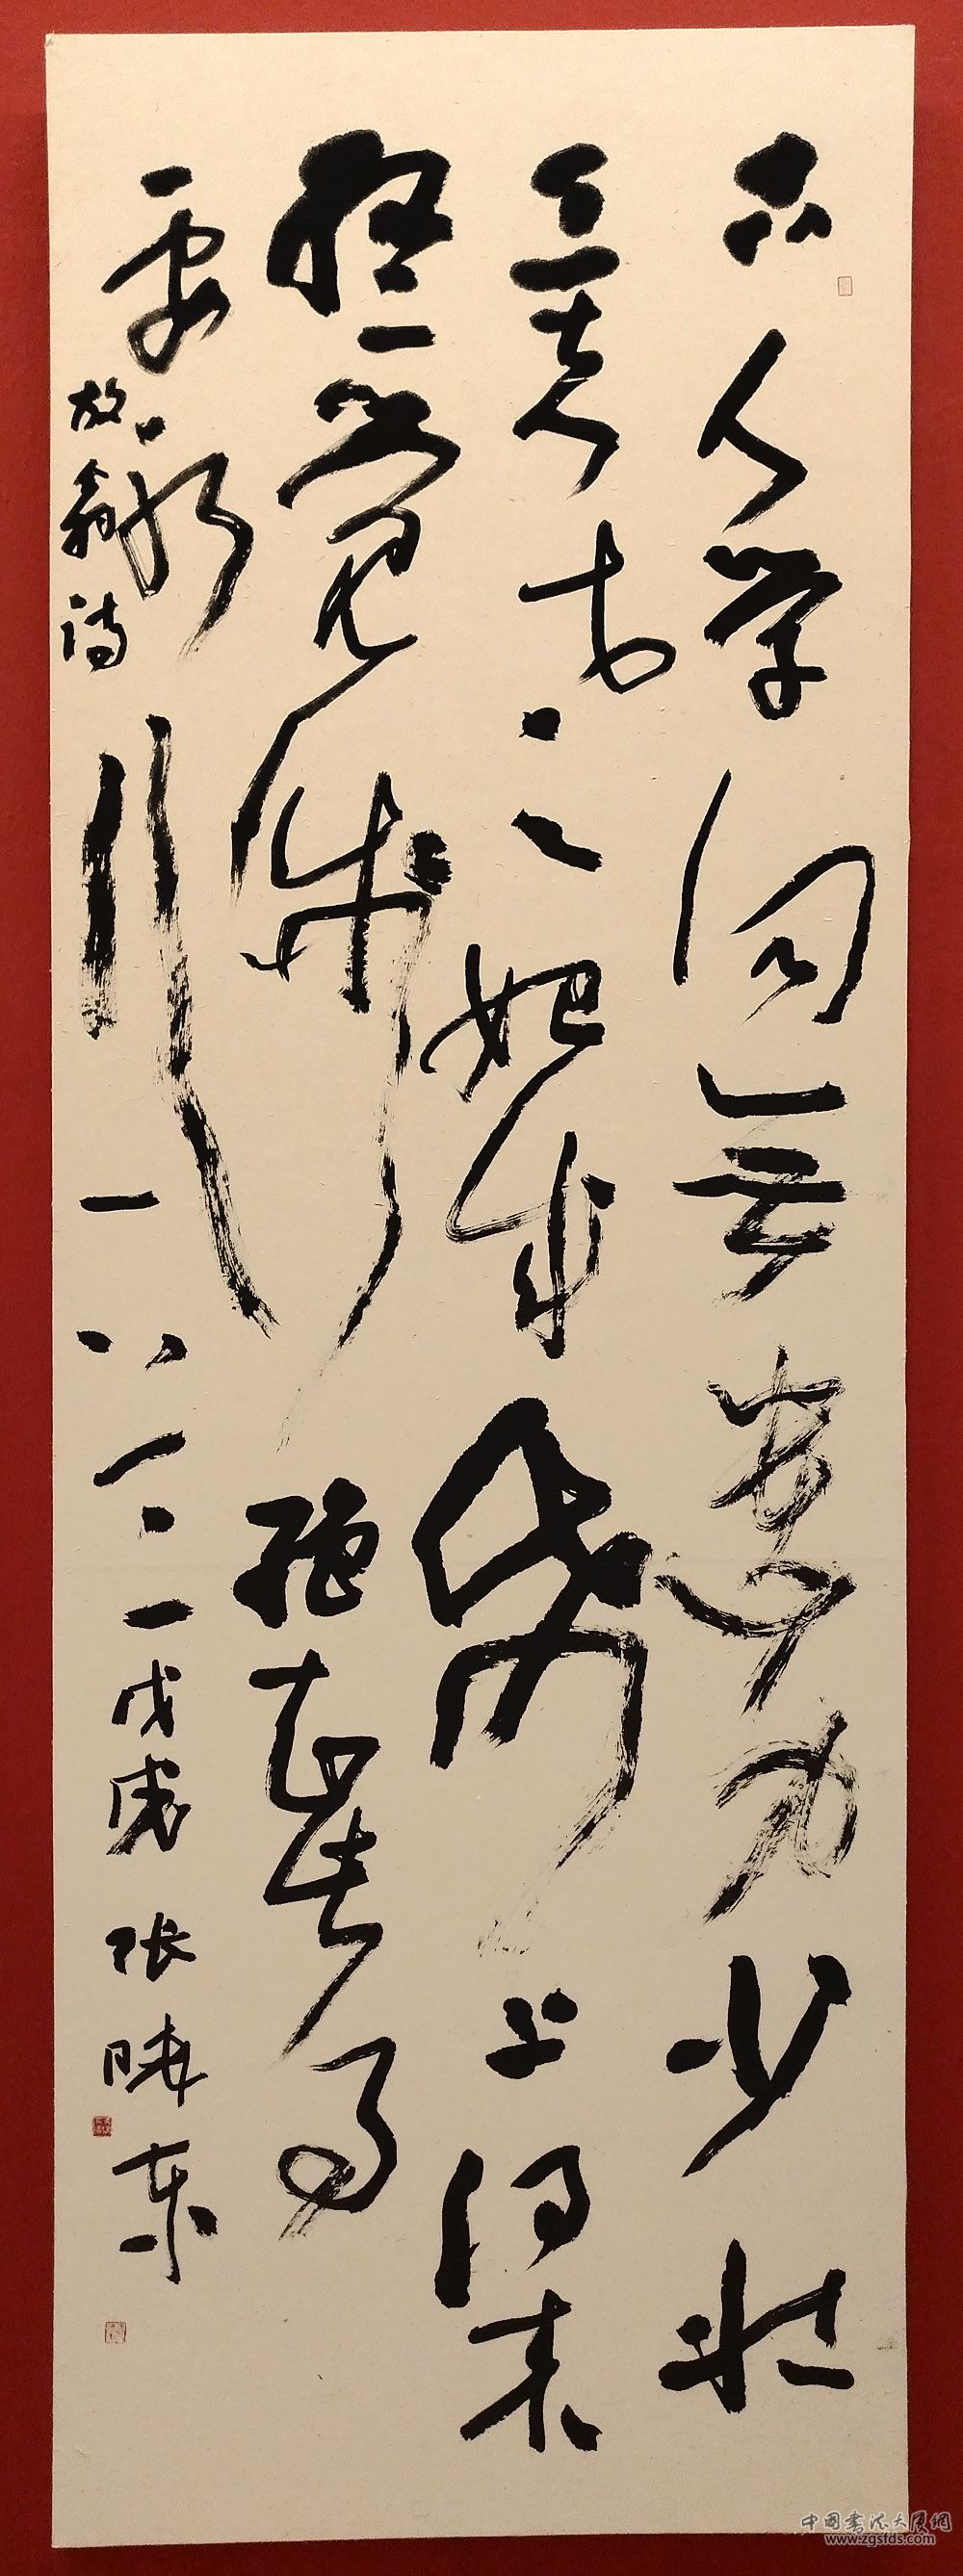 古人学问无遗力少壮
工夫老始成纸上得来
终觉浅绝知此事
要躬行
放翁诗
一八一二戊戌张东
中国书法大厦网
www.zgsfds.com